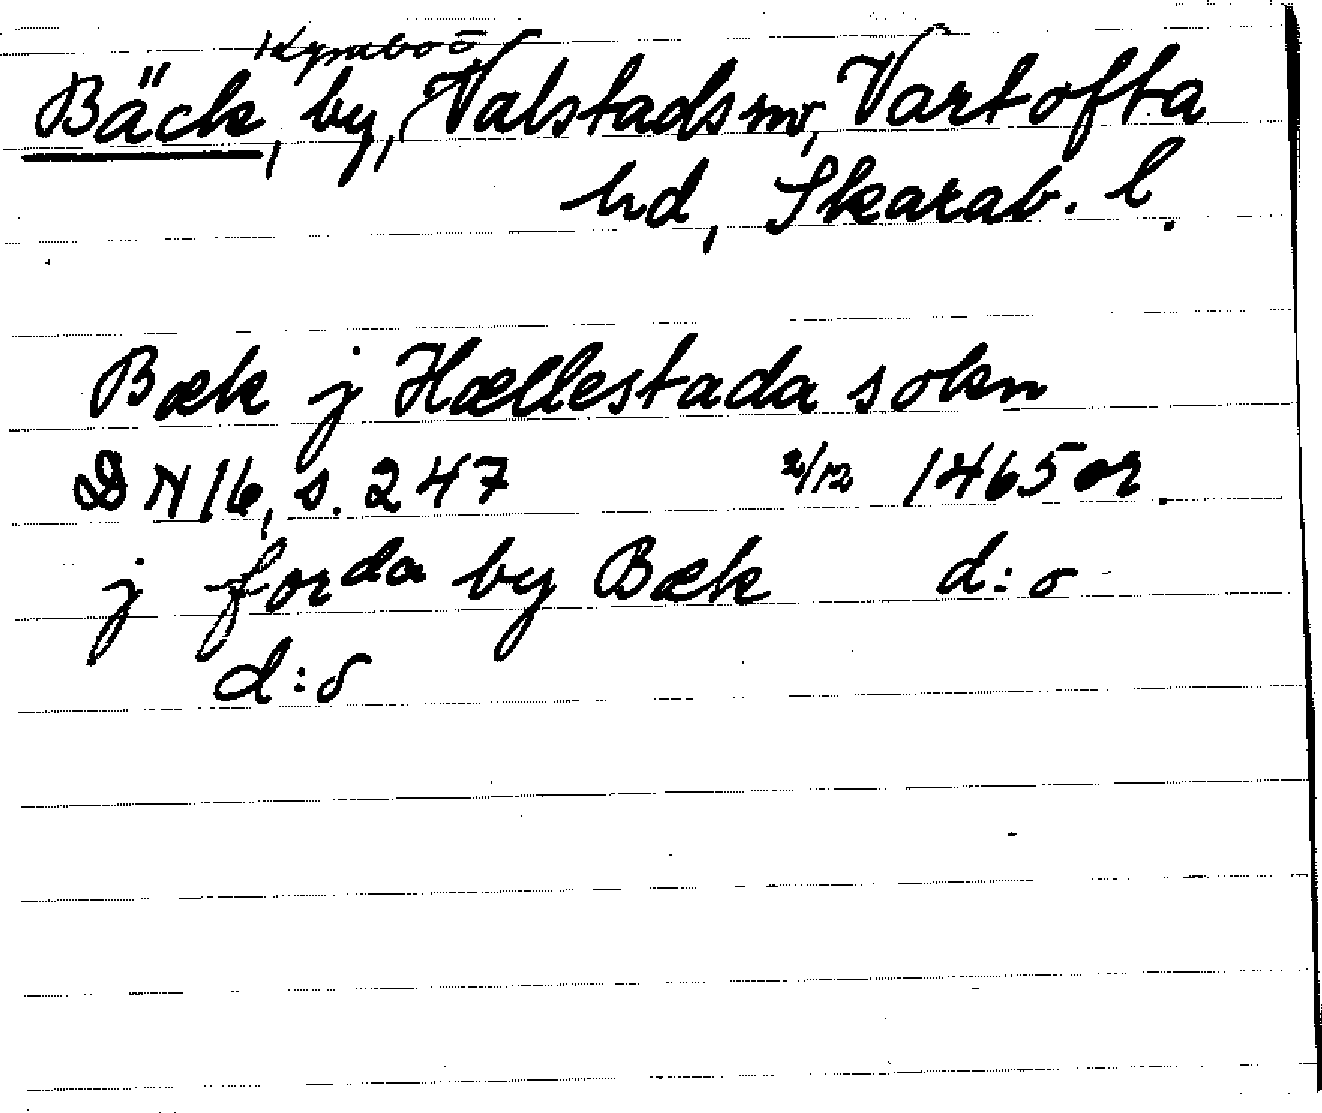 Kymbo =
Bäck, by, Valstads sn, Vartofta
hd, Skarab. l.
Bæk j Hællestada sokn
DN 16, s. 247 2/12 1465 or.
j forda by Bæk d:o
d:o